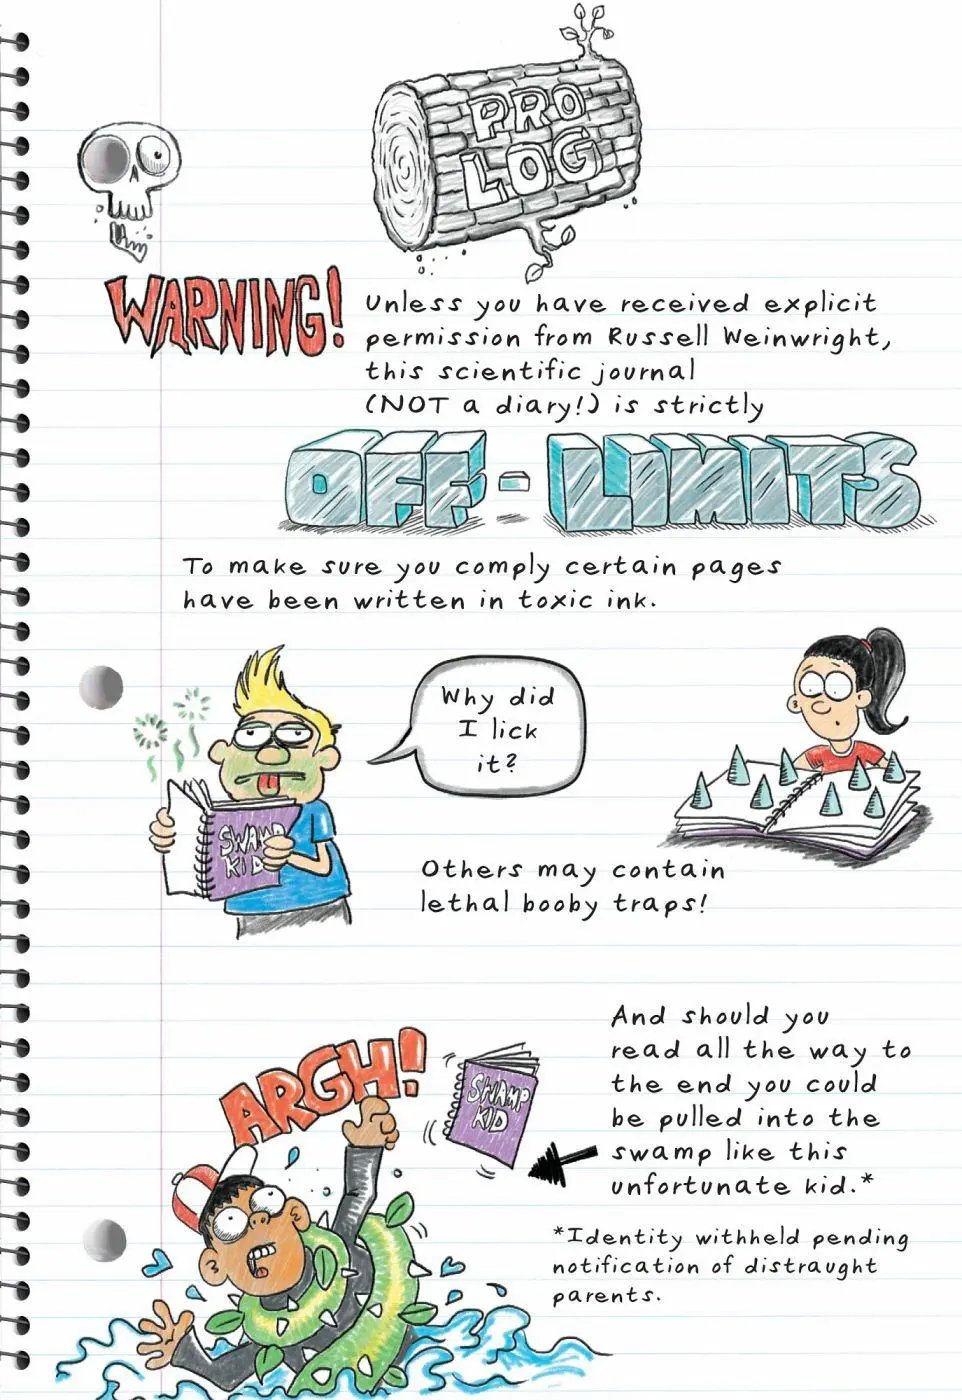 PRO
LOG
WARNING!
Unless you have received explicit
permission from Russell Weinwright,
this scientific journal
(NOT a diary!) is strictly
OFF-LIMITS
To make sure you comply certain pages
have been written in toxic ink.
Why did
I lick
it?
SWAMP
KID
Others may contain
lethal booby traps!
And should you
read all the way to
the end you could
be pulled into the
swamp like this
unfortunate kid.*
ARGH!
SWAMP
KID
*Identity withheld pending
notification of distraught
parents.